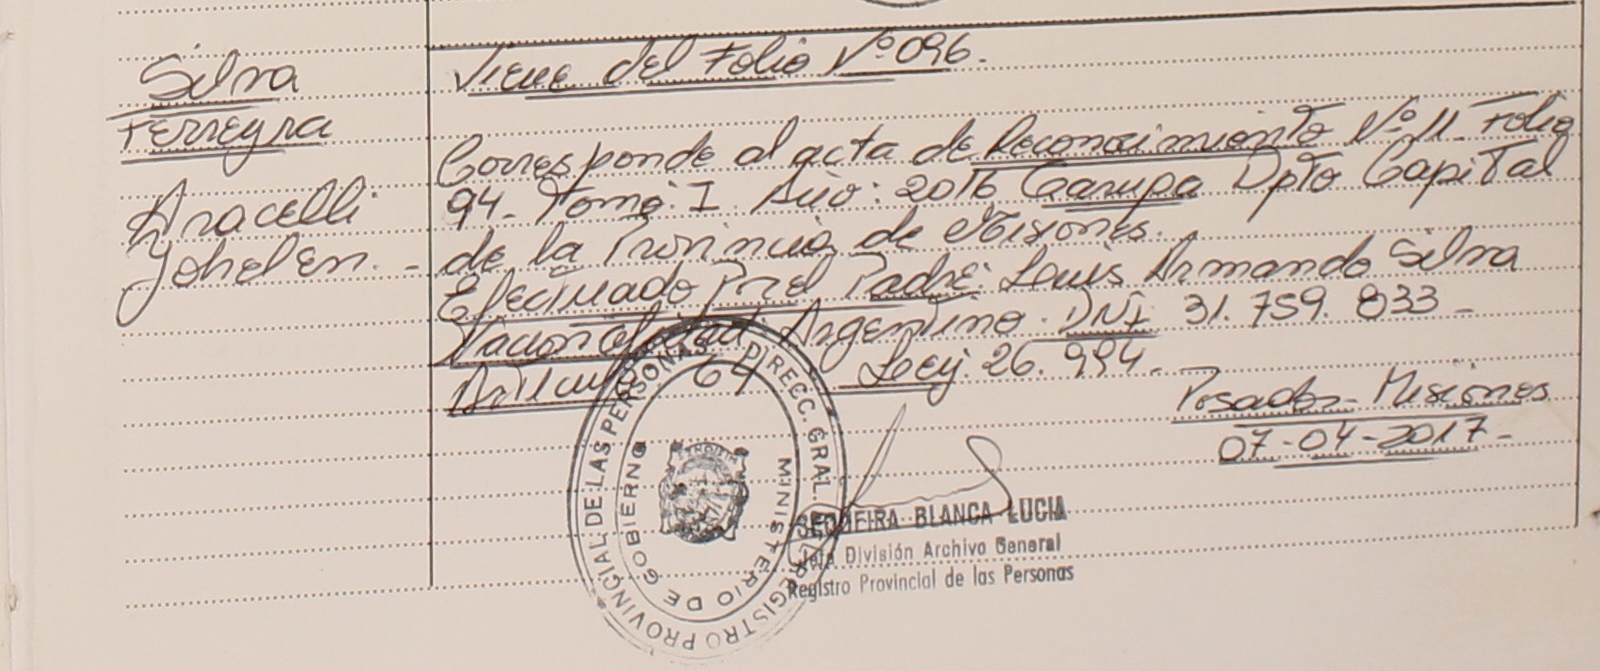 Silva
Ferreyra
Aracelli
Yohelen. -
Viene del Folio Nº 096.
Corresponde al acta de Reconocimiento Nº 11 Folio
94 - Tomo: I Año: 2016 Garupa Dpto Capital
de la Provincia de Misiones.
Efectuado Por el Padre: Luis Armando Silva
Nacionalidad: Argentino. DNI 31.759.833 -
Articulo 64 Ley. 26.994.
Posadas - Misiones
07-04-2017-
DIRECC. GRAL. DEL REGISTRO PROVINCIAL DE LAS PERSONAS
MINISTERIO DE GOBIERNO
MISIONES
SEQUEIRA BLANCA LUCIA
Jefa División Archivo General
Registro Provincial de las Personas